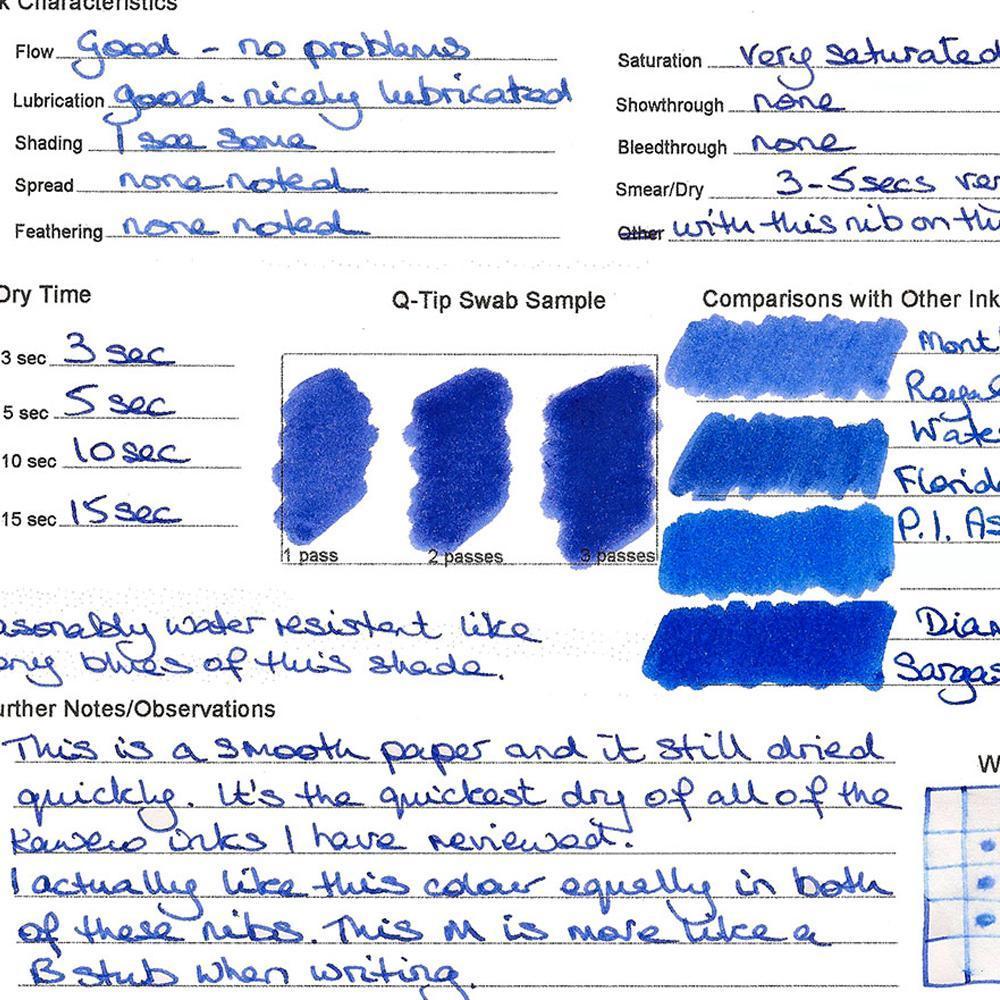 k Characteristics
Flow good - no problems
Lubrication good - nicely lubricated
Shading I see some
Spread none noted
Feathering none noted
Saturation very saturated
Showthrough none
Bleedthrough none
Smear/Dry 3-5secs ver
Other with this nib on thi
Dry Time
3 sec 3 sec
5 sec 5 sec
10 sec 10 sec
15 sec 15 sec
Q-Tip Swab Sample
1 pass 2 passes 3 passes
Comparisons with Other Ink
Mont
Royal
Wate
Florida
P.I. As
Diam
Sargas
asonably water resistant like
ony blues of this shade.
urther Notes/Observations
This is a smooth paper and it still dried
quickly. It's the quickest dry of all of the
Kaweco inks I have reviewed.
I actually like this colour equally in both
of these nibs. This M is more like a
B stub when writing.
W